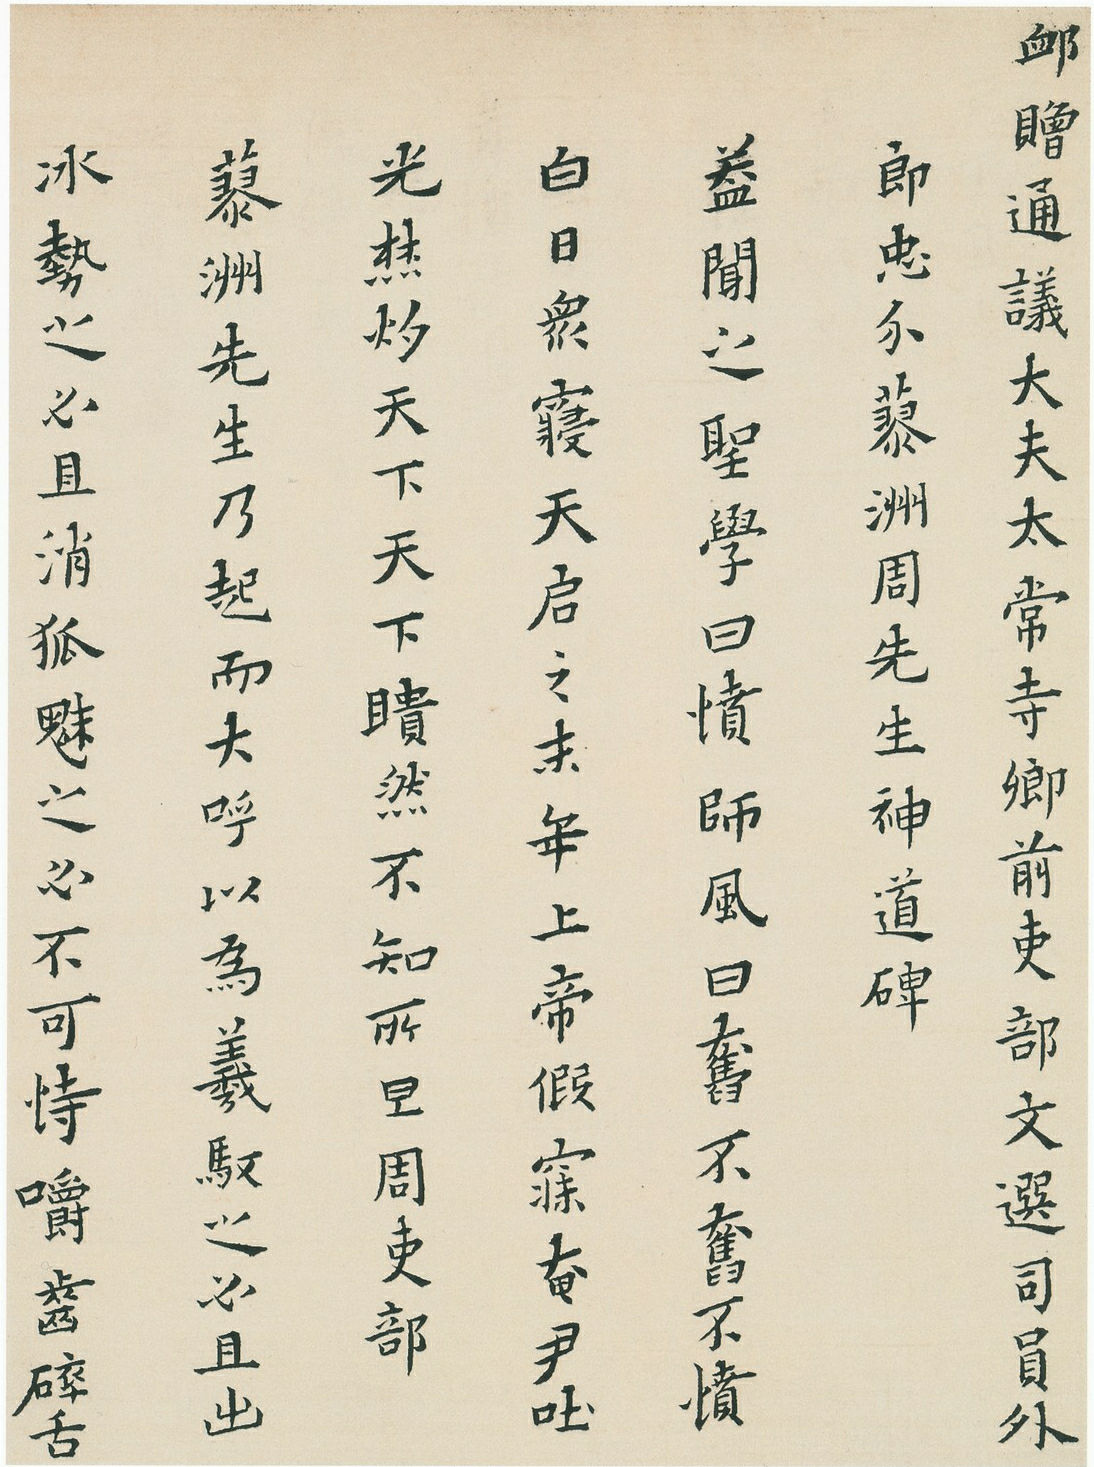 卹贈通議大夫太常寺卿前吏部文選司員外
郎忠介蓼洲周先生神道碑
葢聞之聖學曰憤師風曰奮不奮不憤
白日衆寢天启之末年上帝假寐奄尹吐
光焚灼天下天下瞶然不知所目周吏部
蓼洲先生乃起而大呼以為羲馭之必且出
冰勢之必且消狐魅之必不可恃嚼齒碎舌